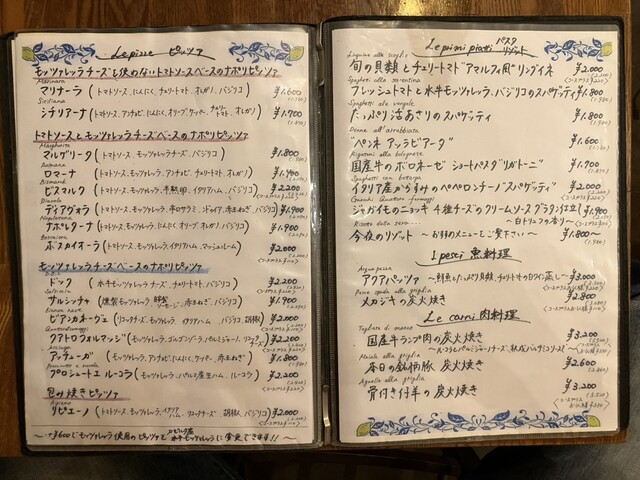 Le pizze ピッツァ
モッツァレッラチーズを使わないトマトソースベースのナポリピッツァ
Marinara
マリナーラ(トマトソース、にんにく、チェリートマト、オレガノ) ¥1,600
Siciliana
シチリアーナ(トマトソース、アンチョビ、にんにく、オリーブ、ケッパー、チェリートマト、オレガノ) ¥1,700
トマトソースとモッツァレッラチーズベースのナポリピッツァ
Margherita
マルゲリータ(トマトソース、モッツァレッラチーズ、バジリコ) ¥1,800
Romana
ロマーナ(トマトソース、モッツァレッラ、アンチョビ、チェリートマト、オレガノ) ¥1,900
Bismark
ビスマルク(トマトソース、モッツァレッラ、半熟卵、イタリアハム、バジリコ) ¥2,200
Diavola
ディアヴォラ(トマトソース、モッツァレッラ、辛口サラミ、ンドゥイア、赤玉ねぎ、バジリコ) ¥1,900
Napoletana
ナポレターナ(トマトソース、モッツァレッラ、にんにく、オリーブ、バジリコ) ¥1,900
Boscaiora
ボスカイオーラ(トマトソース、モッツァレッラ、イタリアハム、マッシュルーム) ¥2,000
モッツァレッラチーズベースのナポリピッツァ
ドック(水牛モッツァレッラ、チェリートマト、バジリコ) ¥2,200
Salsiccia
サルシッチャ(燻製モッツァレッラ、自家製ソーセージ、赤玉ねぎ、バジリコ) ¥1,900
ビアンカネーヴェ(リコッタチーズ、モッツァレッラ、イタリアハム、バジリコ、胡椒) ¥2,000
クアトロフォルマッジ(モッツァレッラ、ゴルゴンゾーラ、パルミジャーノ、リコッタ) ¥2,200
アッチューガ(モッツァレッラ、アンチョビ、にんにく、ケッパー、赤玉ねぎ) ¥1,800
プロシュートエルーコラ(モッツァレッラ、パルマ産生ハム、ルーコラ) ¥2,200
包み焼きピッツァ
Ripieno
リピエーノ(トマトソース、モッツァレッラ、イタリアハム、リコッタチーズ、胡椒、バジリコ) ¥2,000
〜+¥600でモッツァレッラ使用のピッツァを水牛モッツァレッラに変更できます!!〜
Le primi piatti パスタ リゾット
Linguine allo scoglio
旬の貝類とチェリートマト"アマルフィ風"リングイネ ¥2,000
Spaghetti alla sorrentina
フレッシュトマトと水牛モッツァレッラ、バジリコのスパゲッティ ¥1,800
Spaghetti alle vongole
たっぷり活あさりのスパゲッティ ¥1,800
Penne all'arrabbiata
ペンネ"アッラビアータ" ¥1,600
Rigatoni alla bolognese
国産牛のボロネーゼ ショートパスタ"リガトーニ" ¥1,900
Spaghetti con bottarga
イタリア産からすみのペペロンチーノ"スパゲッティ" ¥2,000
Gnocchi Quattro formaggi
ジャガイモのニョッキ 4種チーズのクリームソースグラタン仕立て ¥1,900
〜白トリュフの香り〜
Risotto della sera
今夜のリゾット 〜お勧めメニューをご覧下さい〜 ¥1,800〜
I pesci 魚料理
Acqua pazza
アクアパッツァ 〜鮮魚とたっぷり貝類、チェリートマトの白ワイン蒸し〜 ¥3,000
Pesce spada alla griglia
メカジキの炭火焼き ¥2,800
Le carni 肉料理
Tagliata di manzo
国産牛ランプ肉の炭火焼き ¥3,200
〜ルーコラとパルミジャーノチーズ、熟成バルサミコソース〜
Maiale alla griglia
本日の銘柄豚 炭火焼き ¥2,600
Agnello alla griglia
骨付き仔羊の炭火焼き ¥3,200